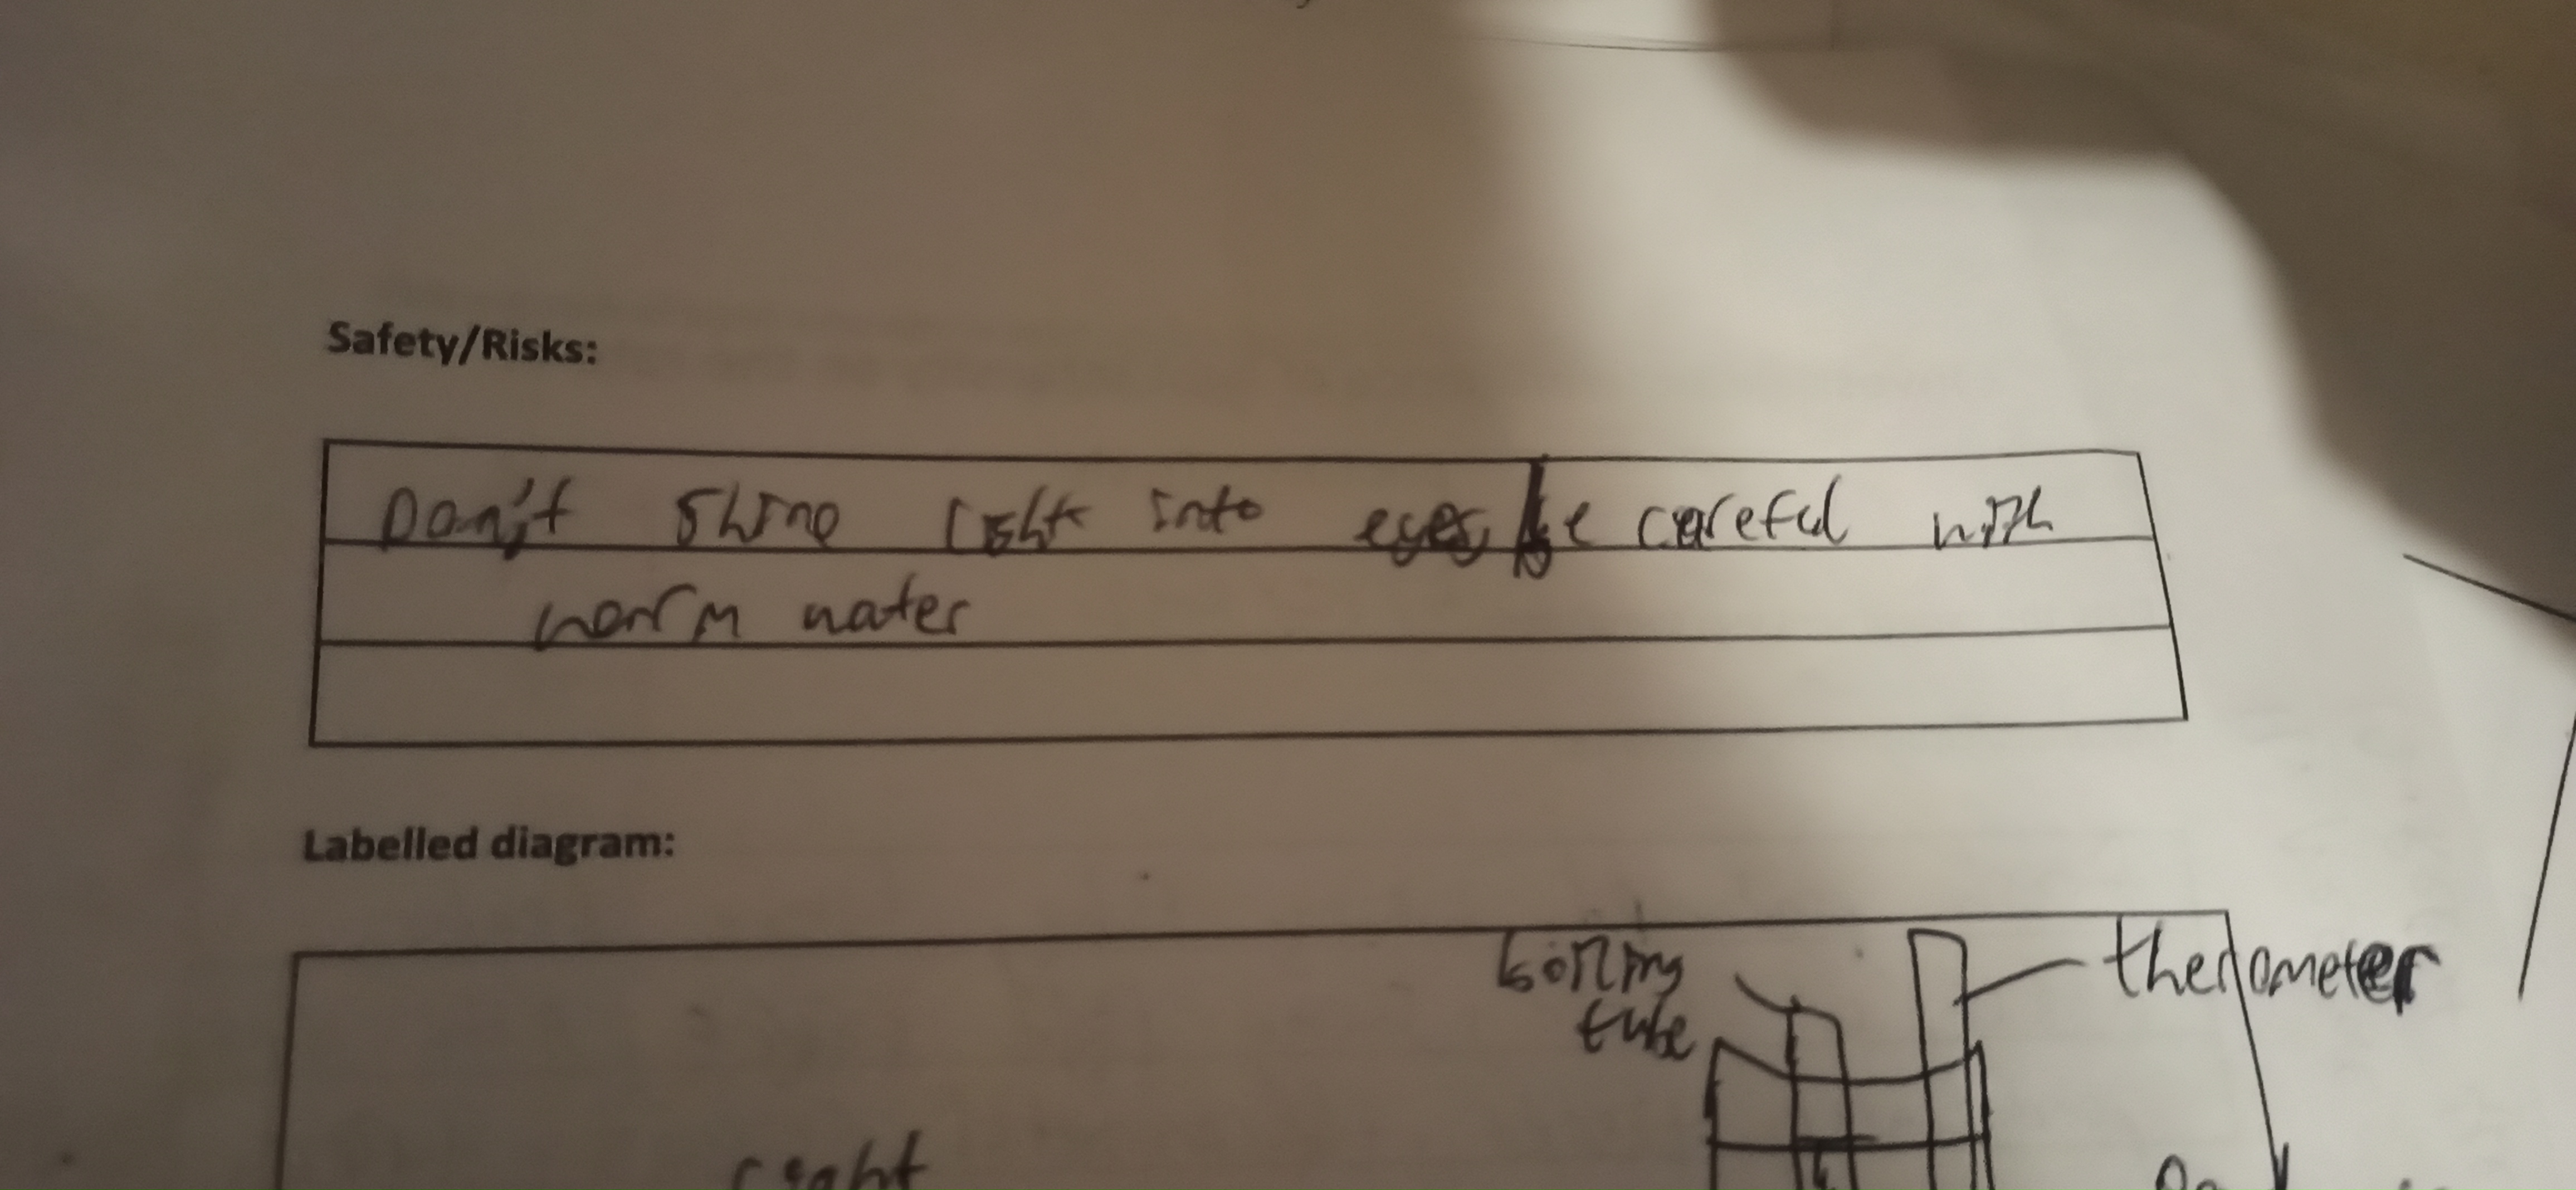 Safety/Risks:
Don't shine light into eyes, be careful with
warm water
Labelled diagram:
boiling
tube
therometer
light